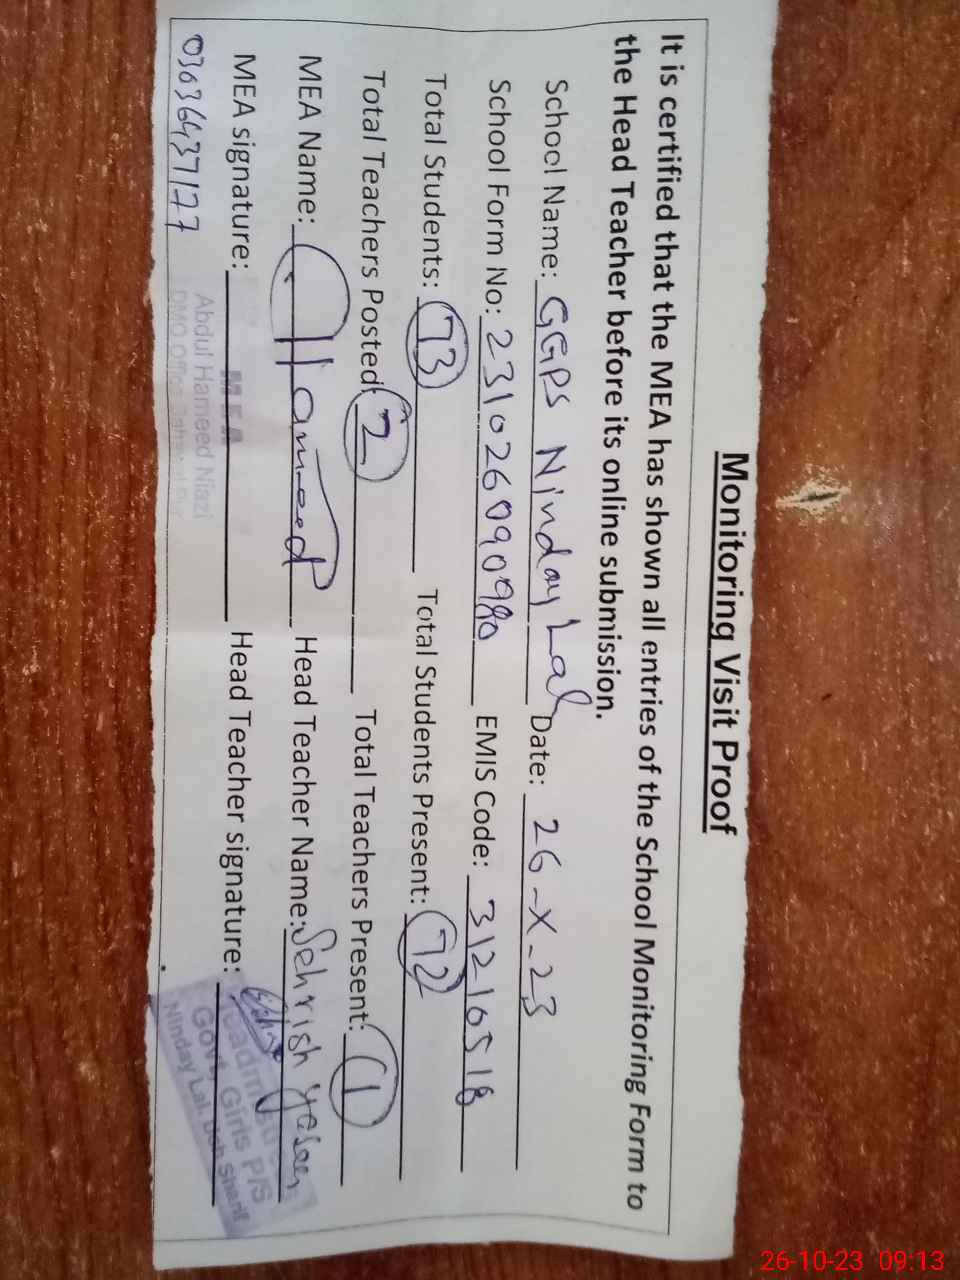 Monitoring Visit Proof
It is certified that the MEA has shown all entries of the School Monitoring Form to
the Head Teacher before its online submission.
School Name: GGPS Ninday Lal Date: 26-X-23
School Form No: 23102609090980 EMIS Code: 31210518
Total Students: 73 Total Students Present: 72
Total Teachers Posted: 2 Total Teachers Present: 1
MEA Name: Hameed Head Teacher Name: Sehrish Yaseen
MEA signature: Head Teacher signature:
03036437177
MEA
Abdul Hameed Niazi
DMO Office
Headmistress
Govt. Girls P/S
Ninday Lal. Uch Sharif
26-10-23 09:13